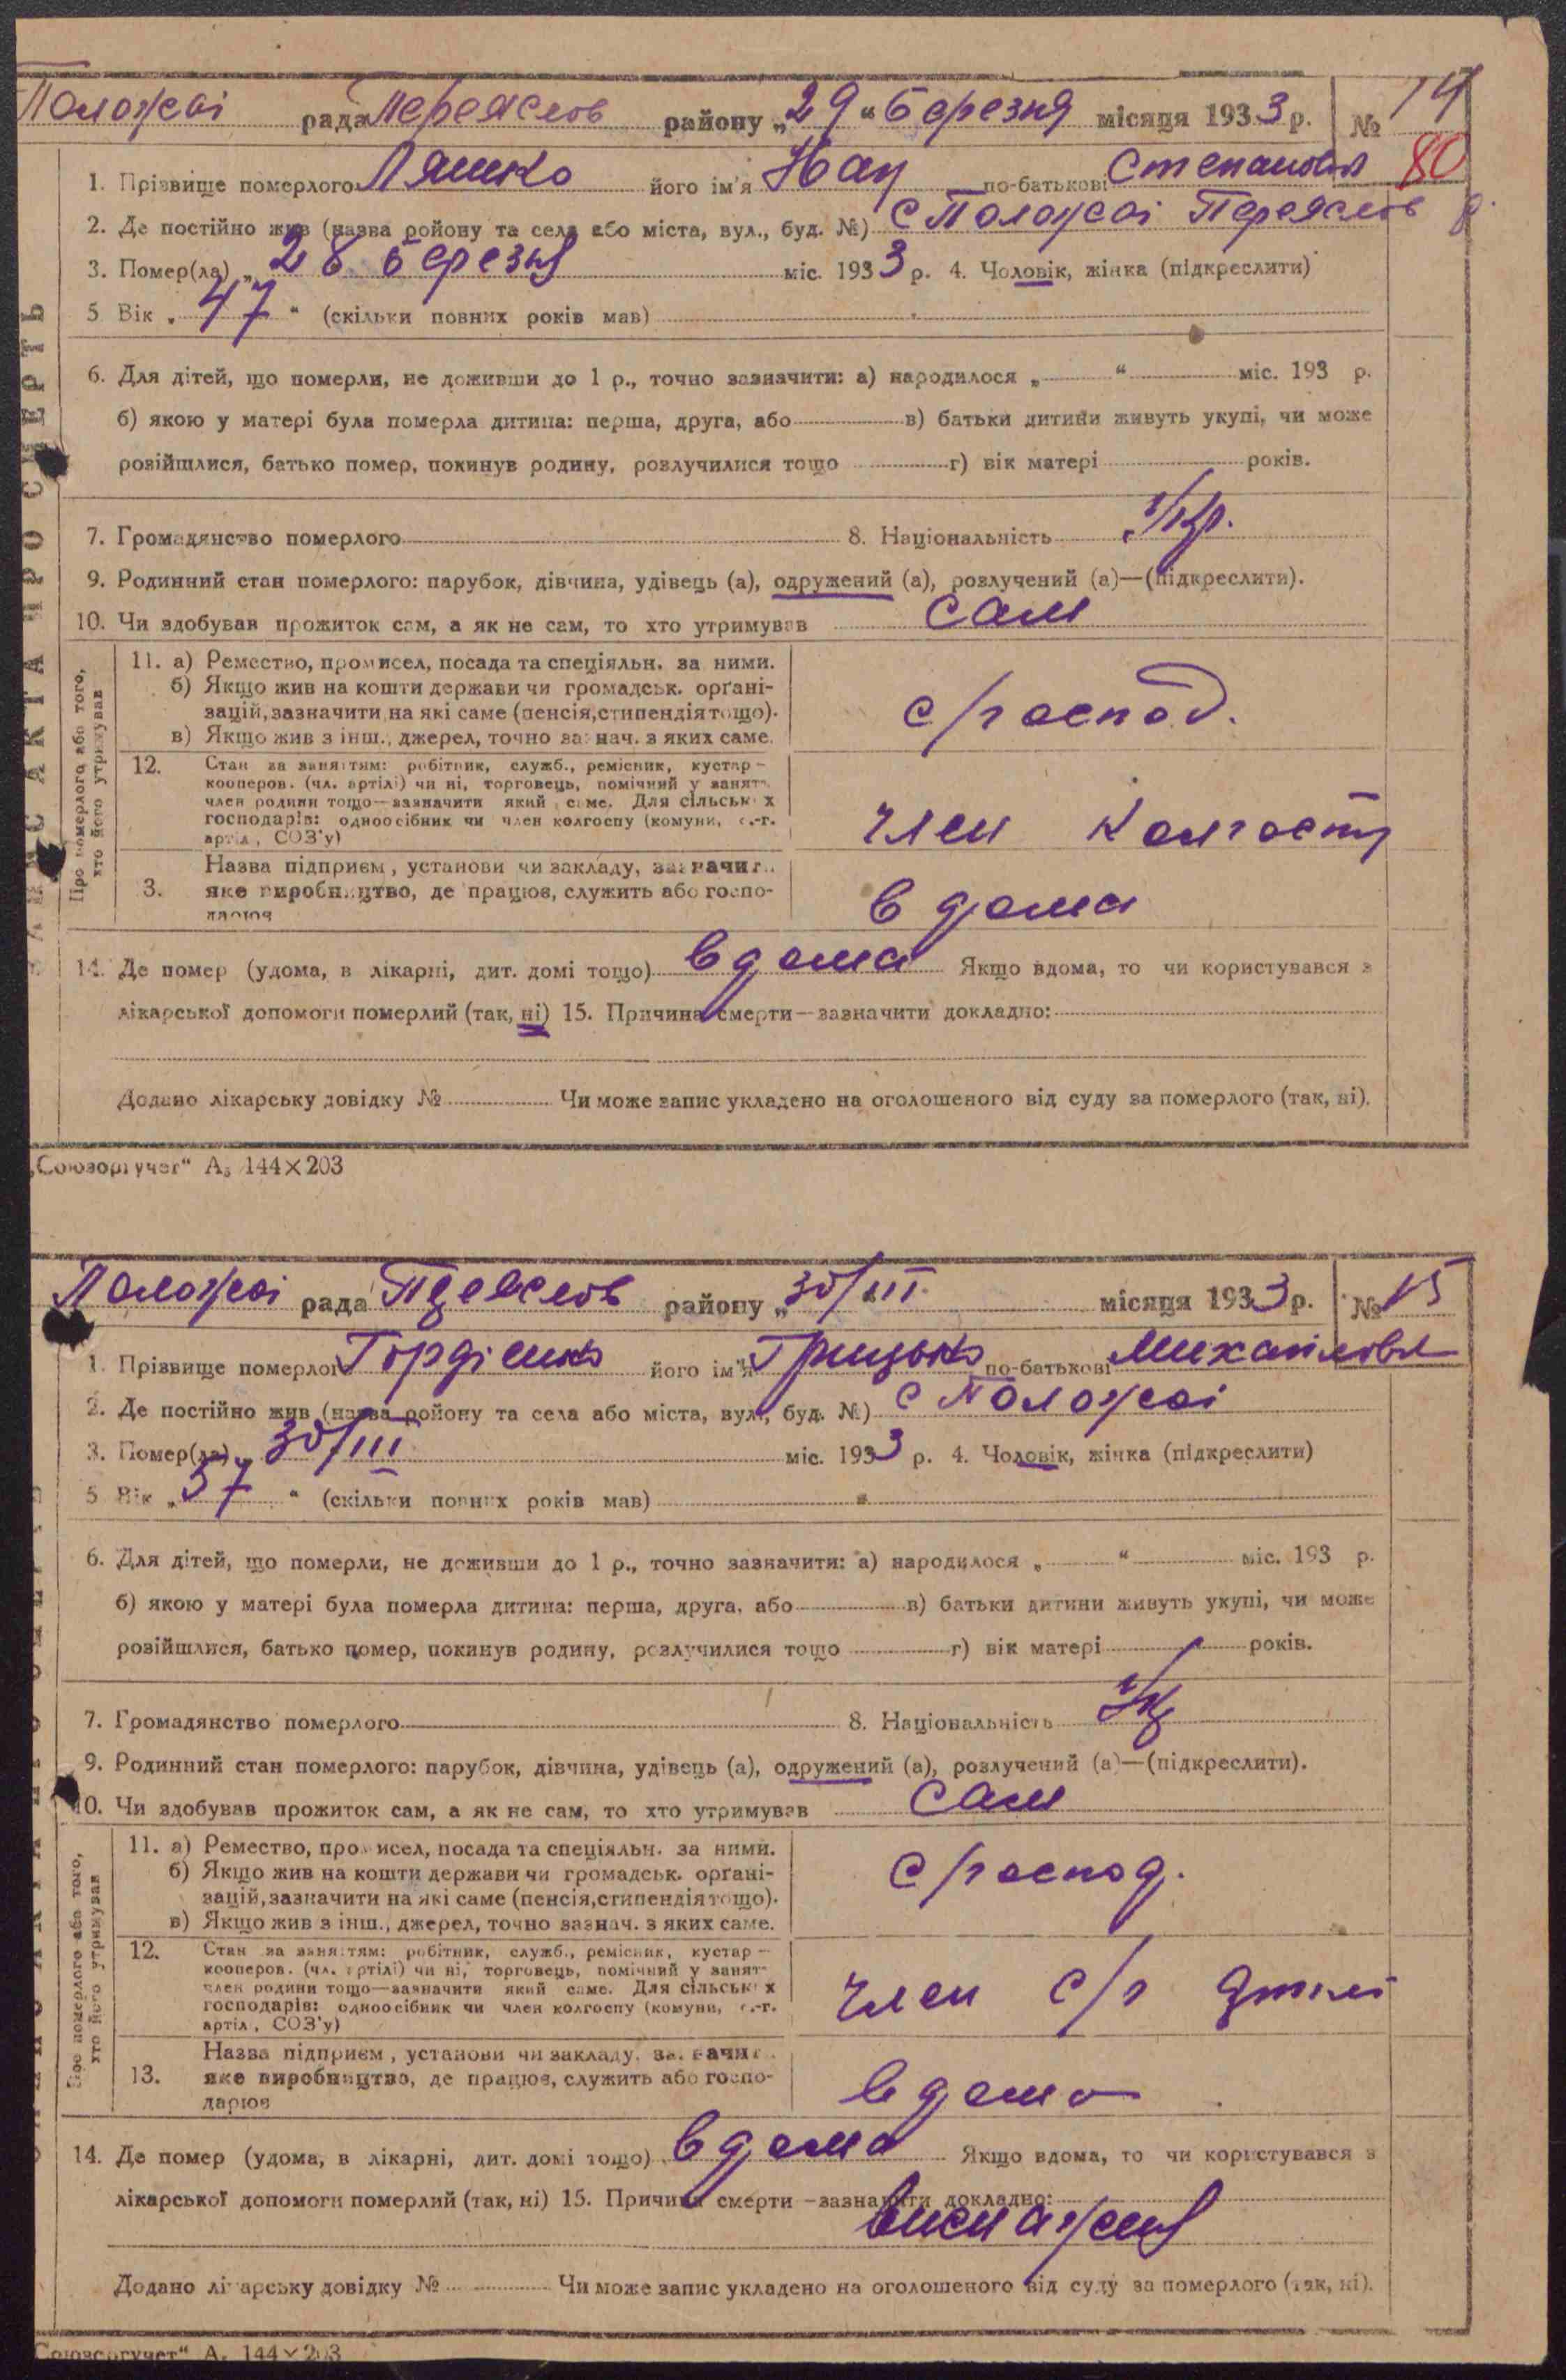 Положаї рада Переяслов району „29“ березня місяця 1933 р. № 14
80
1. Прізвище померлого Ляшко його ім'я по-батькові Степанович
2. Де постійно жив (назва ройону та села або міста, вул., буд. №) с Положаї Переяслов р.
3. Помер(ла) „28 березня міс. 1933 р. 4. Чоловік, жінка (підкреслити)
5 Вік „47“ (скільки повних років мав)
6. Для дітей, що померли, не доживши до 1 р., точно зазначити: а) народилося „ “ міс. 193 р.
б) якою у матері була померла дитина: перша, друга, або в) батьки дитини живуть укупі, чи може
розійшлися, батько помер, покинув родину, розлучилися тощо г) вік матері років.
7. Громадянство померлого 8. Національність Укр.
9. Родинний стан померлого: парубок, дівчина, удівець (а), одружений (а), розлучений (а)—(підкреслити).
10. Чи здобував прожиток сам, а як не сам, то хто утримував сам
ЗАПИС АКТА ПРО СМЕРТЬ
Про померлого або того, хто його утримував
11. а) Ремество, промисел, посада та спеціяльн. за ними.
б) Якщо жив на кошти держави чи громадськ. організацій, зазначити на які саме (пенсія, стипендія тощо).
в) Якщо жив з інш., джерел, точно зазнач. з яких саме.
с/господ.
12. Стан за заняттям: робітник, служб., ремісник, кустар—
кооперов. (чл. артілі) чи ні, торговець, помічний у занятт.
член родини тощо—зазначити який саме. Для сільських
господарів: одноосібник чи член колгоспу (комуни, с.-г.
артіл., СОЗ'у)
член колгоспу
3. Назва підприєм., установи чи закладу, зазначит.
яке виробництво, де працюв, служить або госпо-
дарюв
в дома
14. Де помер (удома, в лікарні, дит. домі тощо) в дома Якщо вдома, то чи користувався з
лікарської допомоги померлий (так, ні) 15. Причина смерти—зазначити докладно:
Додано лікарську довідку № Чи може запис укладено на оголошеного від суду за померлого (так, ні).
„Союзоргучет“ А₅ 144×203
Положаї рада Переяслов району „30/III місяця 1933 р. № 15
1. Прізвище померлого Гордієнко його ім'я Грицько по-батькові Михайлович
2. Де постійно жив (назва ройону та села або міста, вул., буд. №) с Положаї
3. Помер(ла) „30/III міс. 1933 р. 4. Чоловік, жінка (підкреслити)
5 Вік „57“ (скільки повних років мав)
6. Для дітей, що померли, не доживши до 1 р., точно зазначити: а) народилося „ “ міс. 193 р.
б) якою у матері була померла дитина: перша, друга, або в) батьки дитини живуть укупі, чи може
розійшлися, батько помер, покинув родину, розлучилися тощо г) вік матері років.
7. Громадянство померлого 8. Національність Укр
9. Родинний стан померлого: парубок, дівчина, удівець (а), одружений (а), розлучений (а)—(підкреслити).
10. Чи здобував прожиток сам, а як не сам, то хто утримував сам
Про померлого або того, хто його утримував
11. а) Ремество, промисел, посада та спеціяльн. за ними.
б) Якщо жив на кошти держави чи громадськ. організацій, зазначити на які саме (пенсія, стипендія тощо).
в) Якщо жив з інш., джерел, точно зазнач. з яких саме.
с/господ.
12. Стан за заняттям: робітник, служб., ремісник, кустар—
кооперов. (чл. артілі) чи ні, торговець, помічний у занят-
член родини тощо—зазначити який саме. Для сільських
господарів: одноосібник чи член колгоспу (комуни, с.-г.
артіл., СОЗ'у)
член с/г артілі
13. Назва підприєм., установи чи закладу, зазначит.
яке виробництво, де працюв, служить або госпо-
дарюв
вдома
14. Де помер (удома, в лікарні, дит. домі тощо) вдома Якщо вдома, то чи користувався з
лікарської допомоги померлий (так, ні) 15. Причина смерти—зазначити докладно:
виснаження
Додано лікарську довідку № Чи може запис укладено на оголошеного від суду за померлого (так, ні).
Союзоргучет“ А₅ 144×203